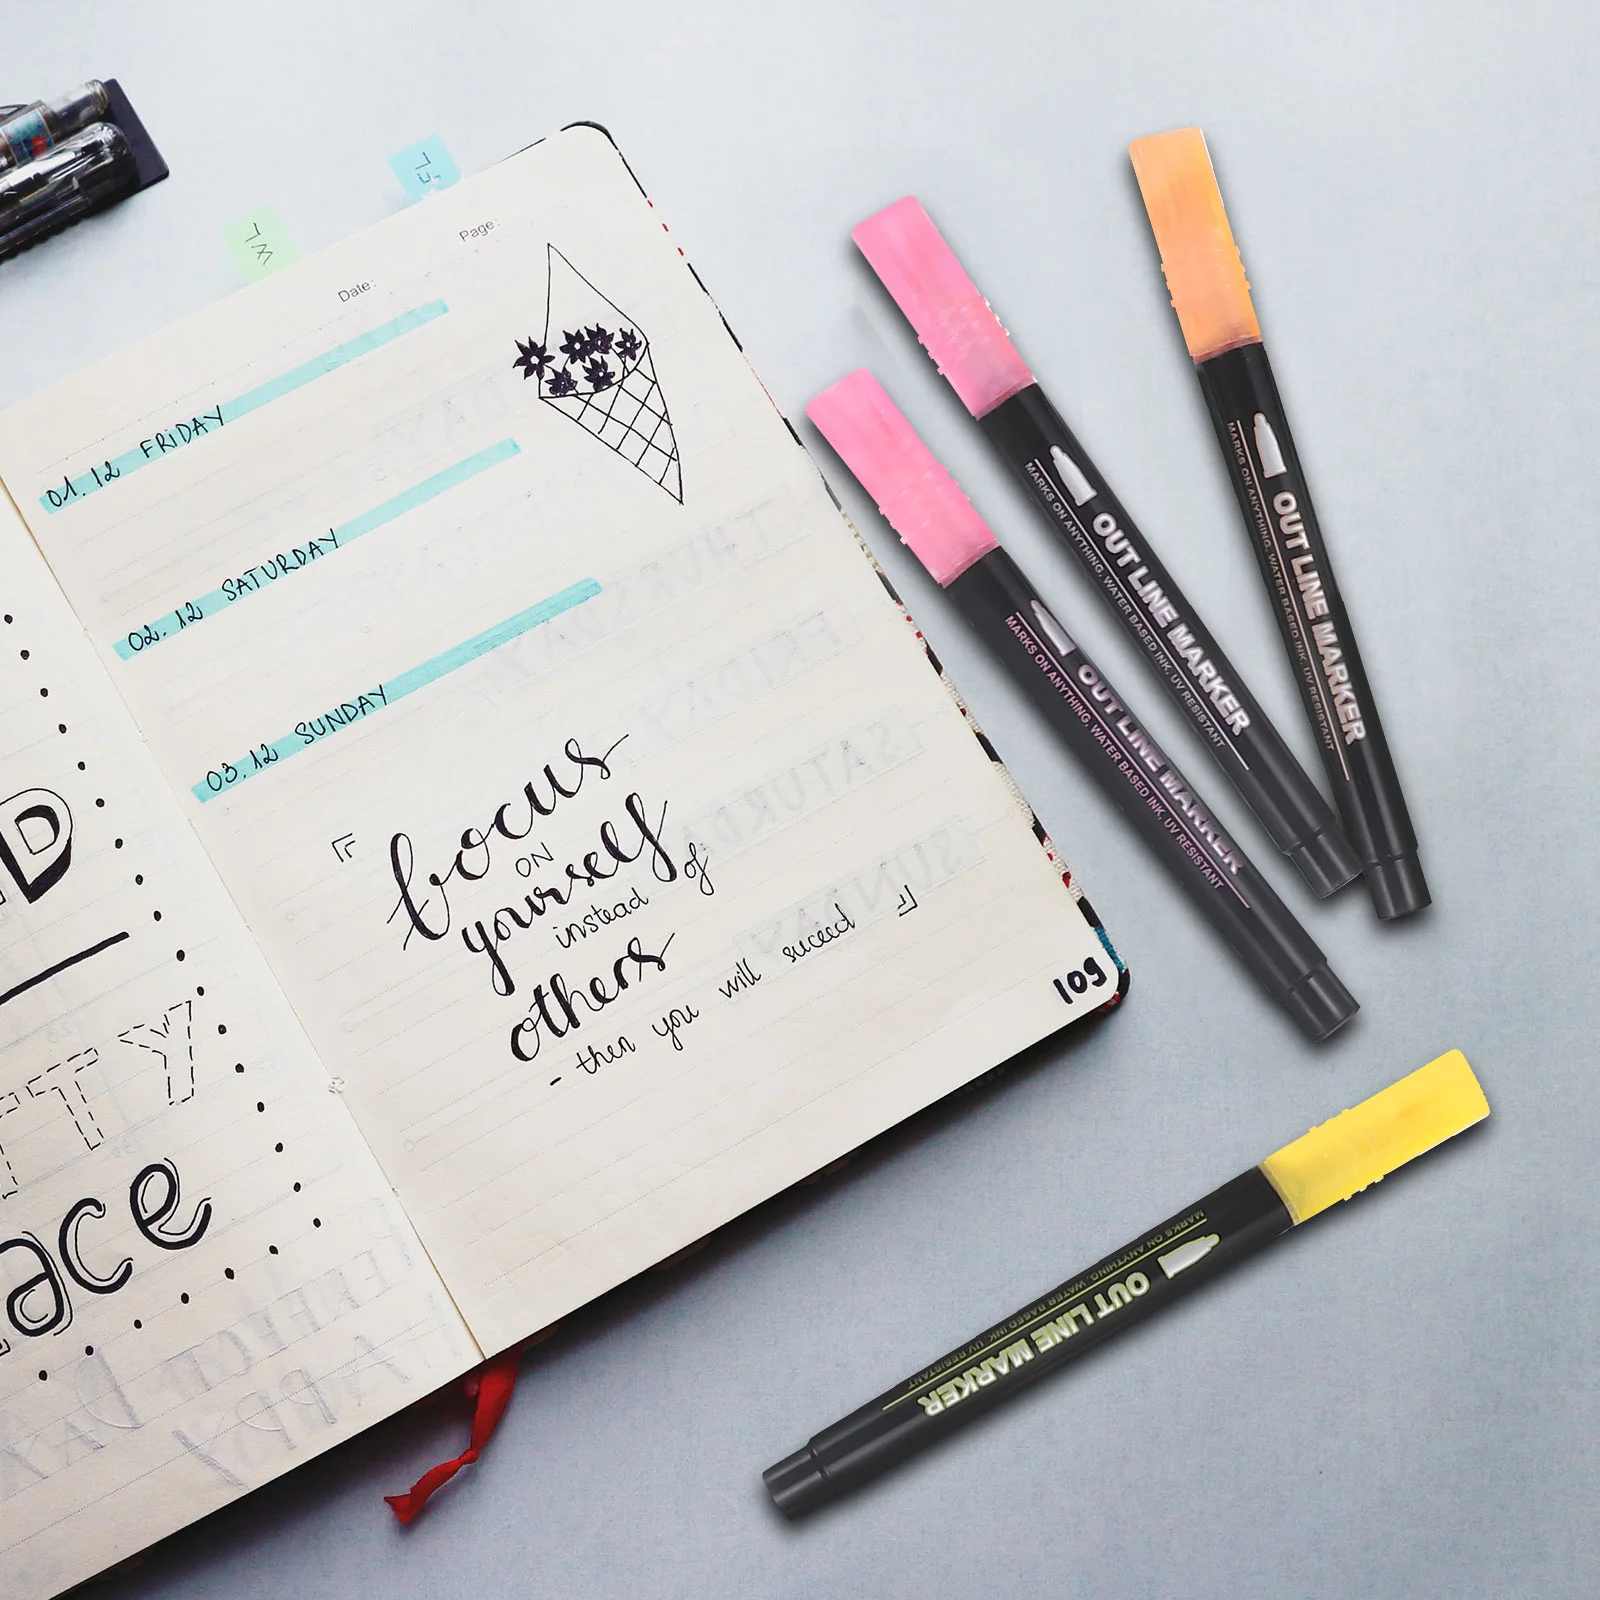 Page:
Date:
01.12 FRIDAY
02.12 SATURDAY
03.12 SUNDAY
focus
ON
yourself
instead of
others
- then you will suceed
109
D
TTY
ace
OUTLINE MARKER
MARKS ON ANYTHING, WATER BASED INK, UV RESISTANT
OUTLINE MARKER
MARKS ON ANYTHING, WATER BASED INK, UV RESISTANT
OUTLINE MARKER
MARKS ON ANYTHING, WATER BASED INK, UV RESISTANT
OUTLINE MARKER
MARKS ON ANYTHING, WATER BASED INK, UV RESISTANT